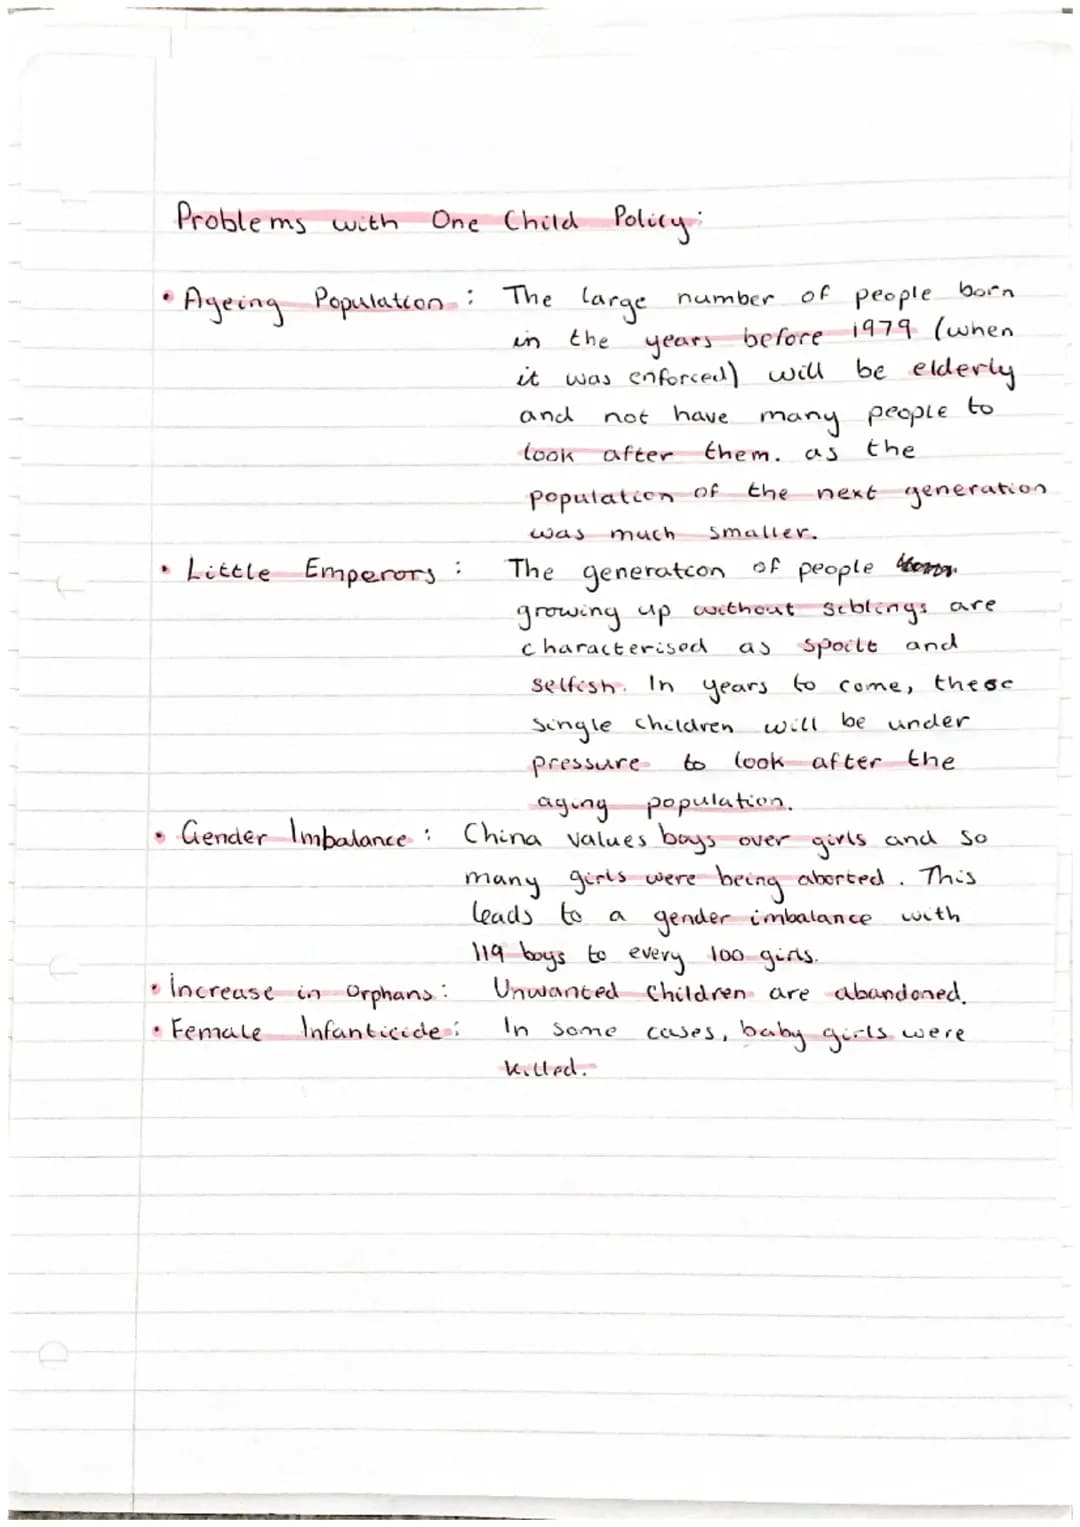 Problems with One Child Policy:
• Ageing Population : The large number of people born
in the years before 1979 (when
it was enforced) will be elderly
and not have many people to
look after them. as the
population of the next generation
was much smaller.
• Little Emperors : The generation of people
growing up without siblings are
characterised as spoilt and
selfish. In years to come, these
single children will be under
pressure to look after the
aging population.
• Gender Imbalance : China values boys over girls and so
many girls were being aborted. This
leads to a gender imbalance with
119 boys to every 100 girls.
• Increase in Orphans : Unwanted children are abandoned.
• Female Infanticide : In some cases, baby girls were
killed.